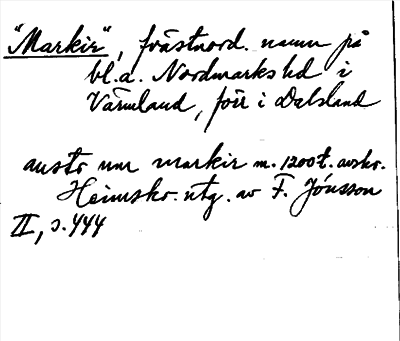 "Markir", fvästnord. namn på
bl.a. Nordmarks hd i
Värmland, förr i Dalsland
austr um markir m. 1200t. avskr.
Heimskr. utg. av F. Jónsson
II, s. 444